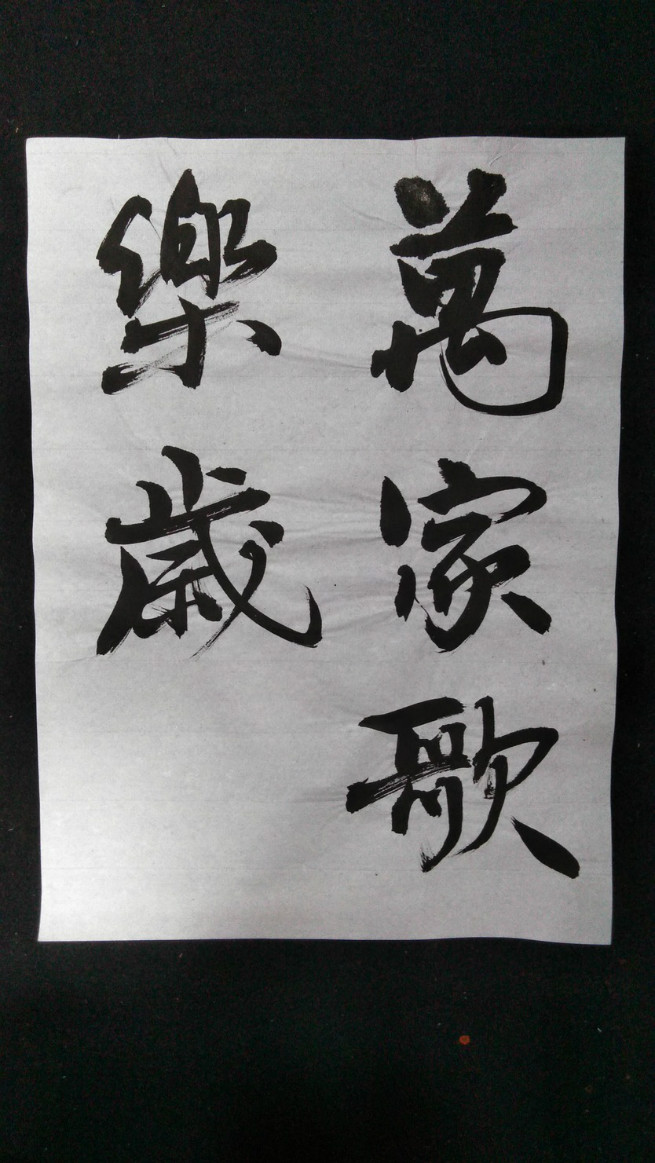 萬家歌
樂歲